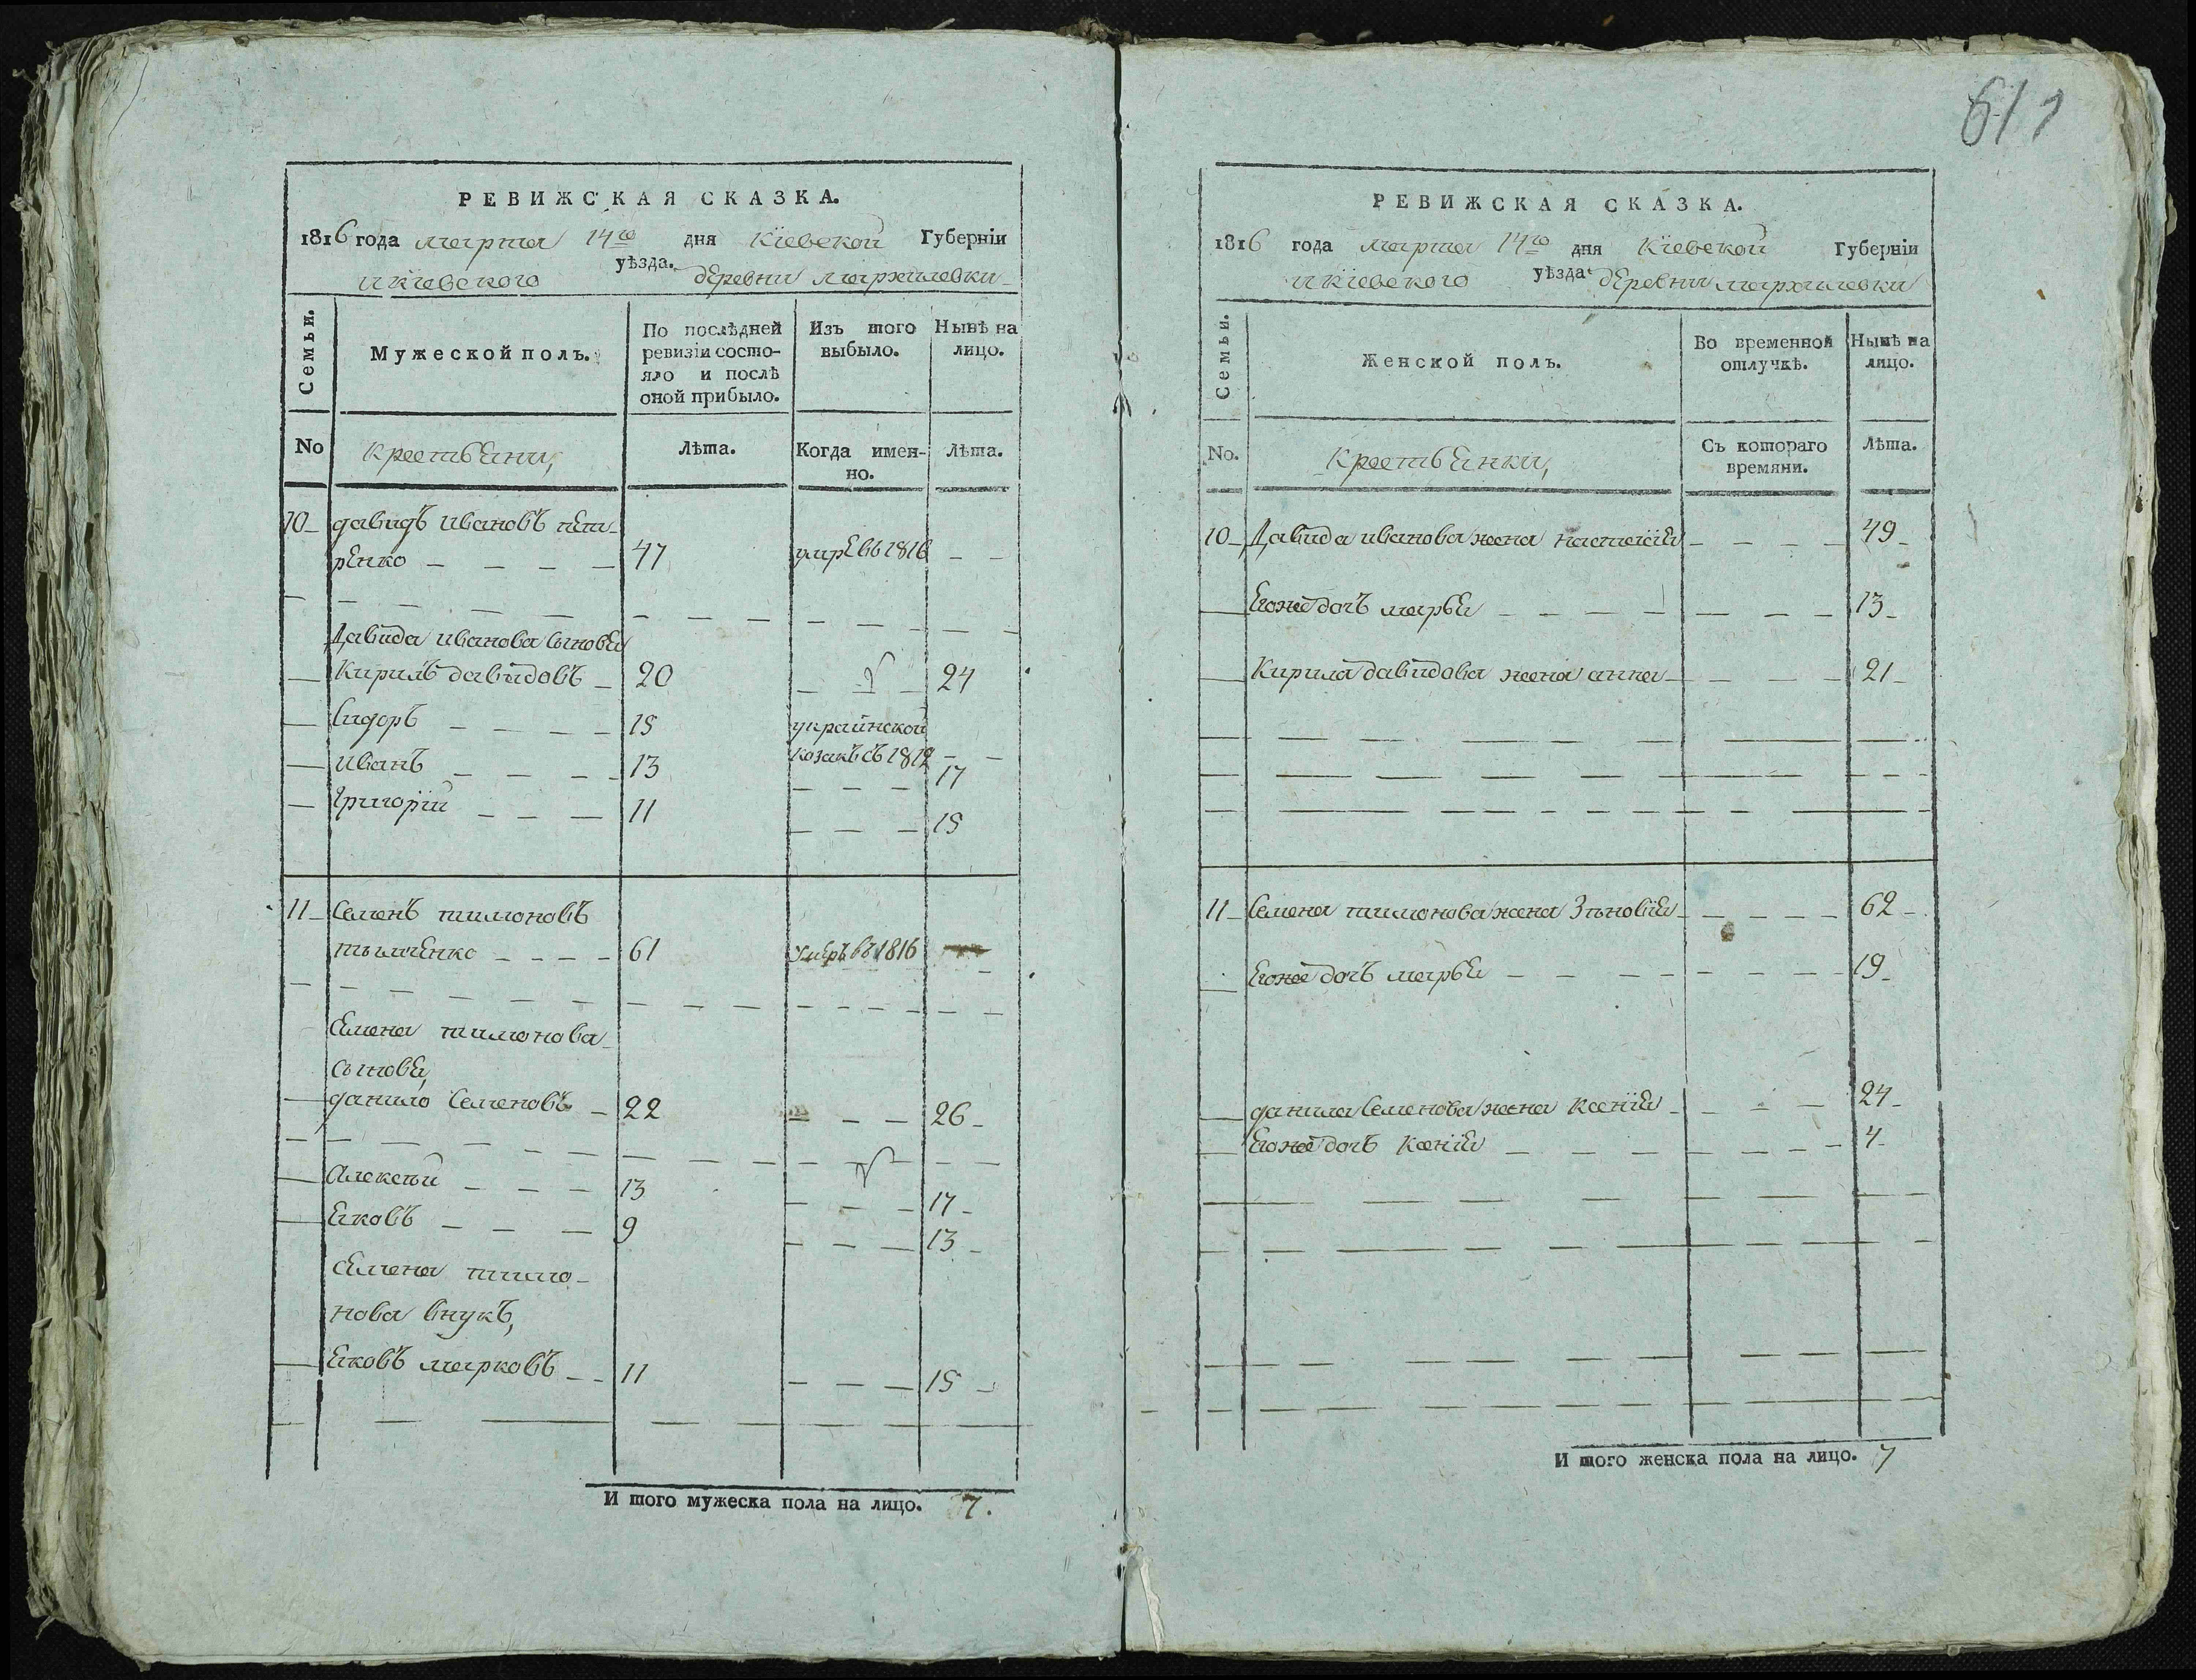 617
РЕВИЖСКАЯ СКАЗКА.
1816 года марта 14го дня Кіевской Губерніи
и кіевского уѣзда. деревни мархалевки
Семьи.
Мужеской полъ.
По послѣдней ревизіи состояло и послѣ оной прибыло.
Изъ того выбыло.
Нынѣ на лицо.
No
крестьяни,
Лѣта.
Когда именно.
Лѣта.
10 давидъ ивановъ пети-
ренко 47 умре въ 1816
Давида иванова сыновя
Кирилъ давидовъ 20 24
Сидоръ 15 украинской
козакъ съ 1812
иванъ 13 17
Григорій 11 15
11 Семенъ тимоновъ
61 умеръ въ 1816
Семена тимонова
сыновя,
данило Семеновъ 22 26
Алексѣй 13 17
яковъ 9 13
Семена тимо-
нова внукъ,
яковъ марковъ 11 15
И того мужеска пола на лицо. 7.
РЕВИЖСКАЯ СКАЗКА.
1816 года марта 14го дня Кіевской Губерніи
и кіевского уѣзда. деревни мархалевки
Семьи.
Женской полъ.
Во временной отлучкѣ.
Нынѣ на лицо.
No.
крестьянки,
Съ котораго времяни.
Лѣта.
10 Давида иванова жена настасія 49
его же дочъ марья 13
Кирила давидова жена анна 21
11 Семена тимонова жена Зѣновія 62
его же дочъ марья 19
данила Семенова жена ксенія 24
его же дочъ ксенія 4
И того женска пола на лицо. 7